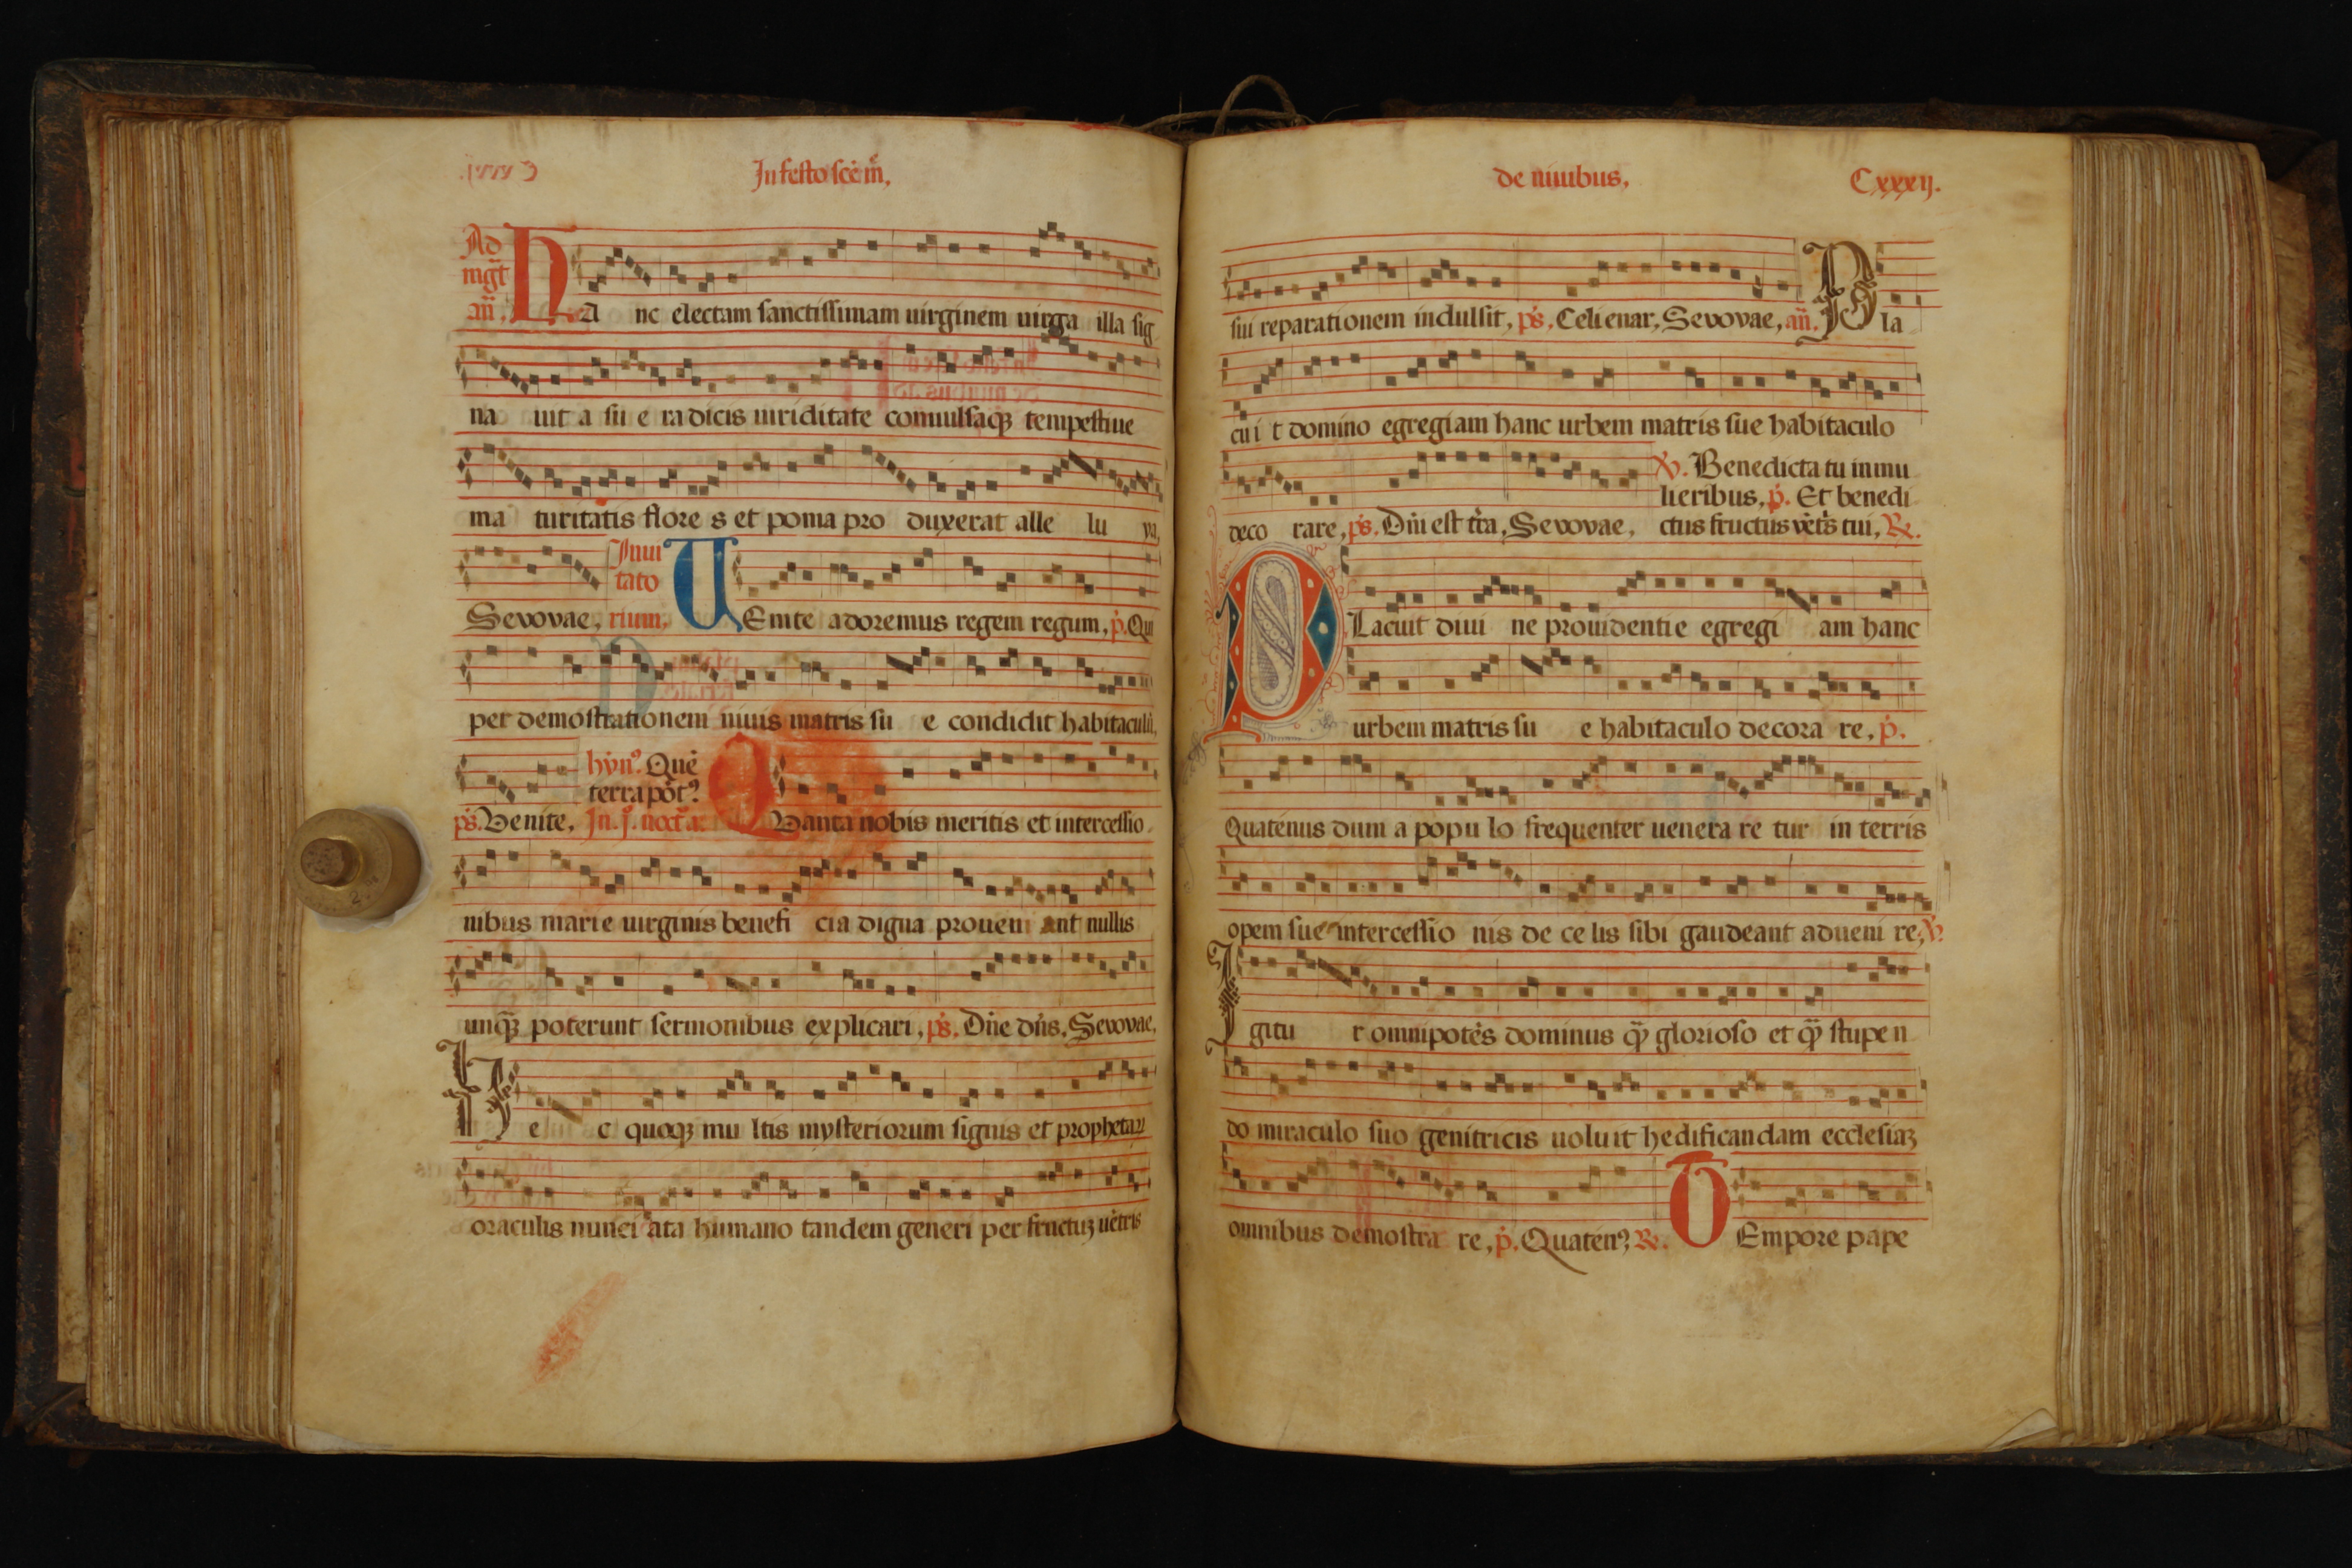 In festo scē m̄,
Ad
mgt̄
an̄.
HA nc electam sanctissimam uirginem uirga illa sig
na uit a su e radicis uiriditate conuulsaqꝫ tempestiue
ma turitatis flore s et poma pro duxerat alle lu ya,
Inui
tato
Sevovae, rium, UEnite adoremus regem regum, p̄. Qui
per demostrationem niuis matris su e condidit habitaculū,
hyn⁹. Quē
terra pōt⁹
ps̄. Venite, In. j. noct̄ a. QVanta nobis meritis et intercessio
nibus marie uirginis benefi cia digna proueni ant nullis
unqꝫ poterunt sermonibus explicari, ps̄. Dn̄e dn̄s. Sevovae,
H e c quoqꝫ mu ltis mysteriorum signis et prophetarū
oraculis nunci ata humano tandem generi per fructuꝫ uētris
de niuibus,
Cxxxij.
sui reparationem indulsit, ps̄. Celi enar, Sevovae, an̄. P la
cui t domino egregiam hanc urbem matris sue habitaculo
℣. Benedicta tu in mu
lieribus, p̄. Et benedi
deco rare, ps̄. Dn̄i est tr̄a, Sevovae, ctus fructus vēt̄s tui, ℟.
PLacuit diui ne prouidentie egregi am hanc
urbem matris su e habitaculo decora re, p̄.
Quatenus dum a popu lo frequenter uenera re tur in terris
opem sue intercessio nis de ce lis sibi gaudeant adueni re, ℣.
I gitu r omnipotēs dominus qꝫ̄ glorioso et qꝫ̄ stupen
do miraculo suo genitricis uoluit hedificandam ecclesiaꝫ
omnibus demostra re, p̄. Quaten⁹, ℟. TEmpore pape